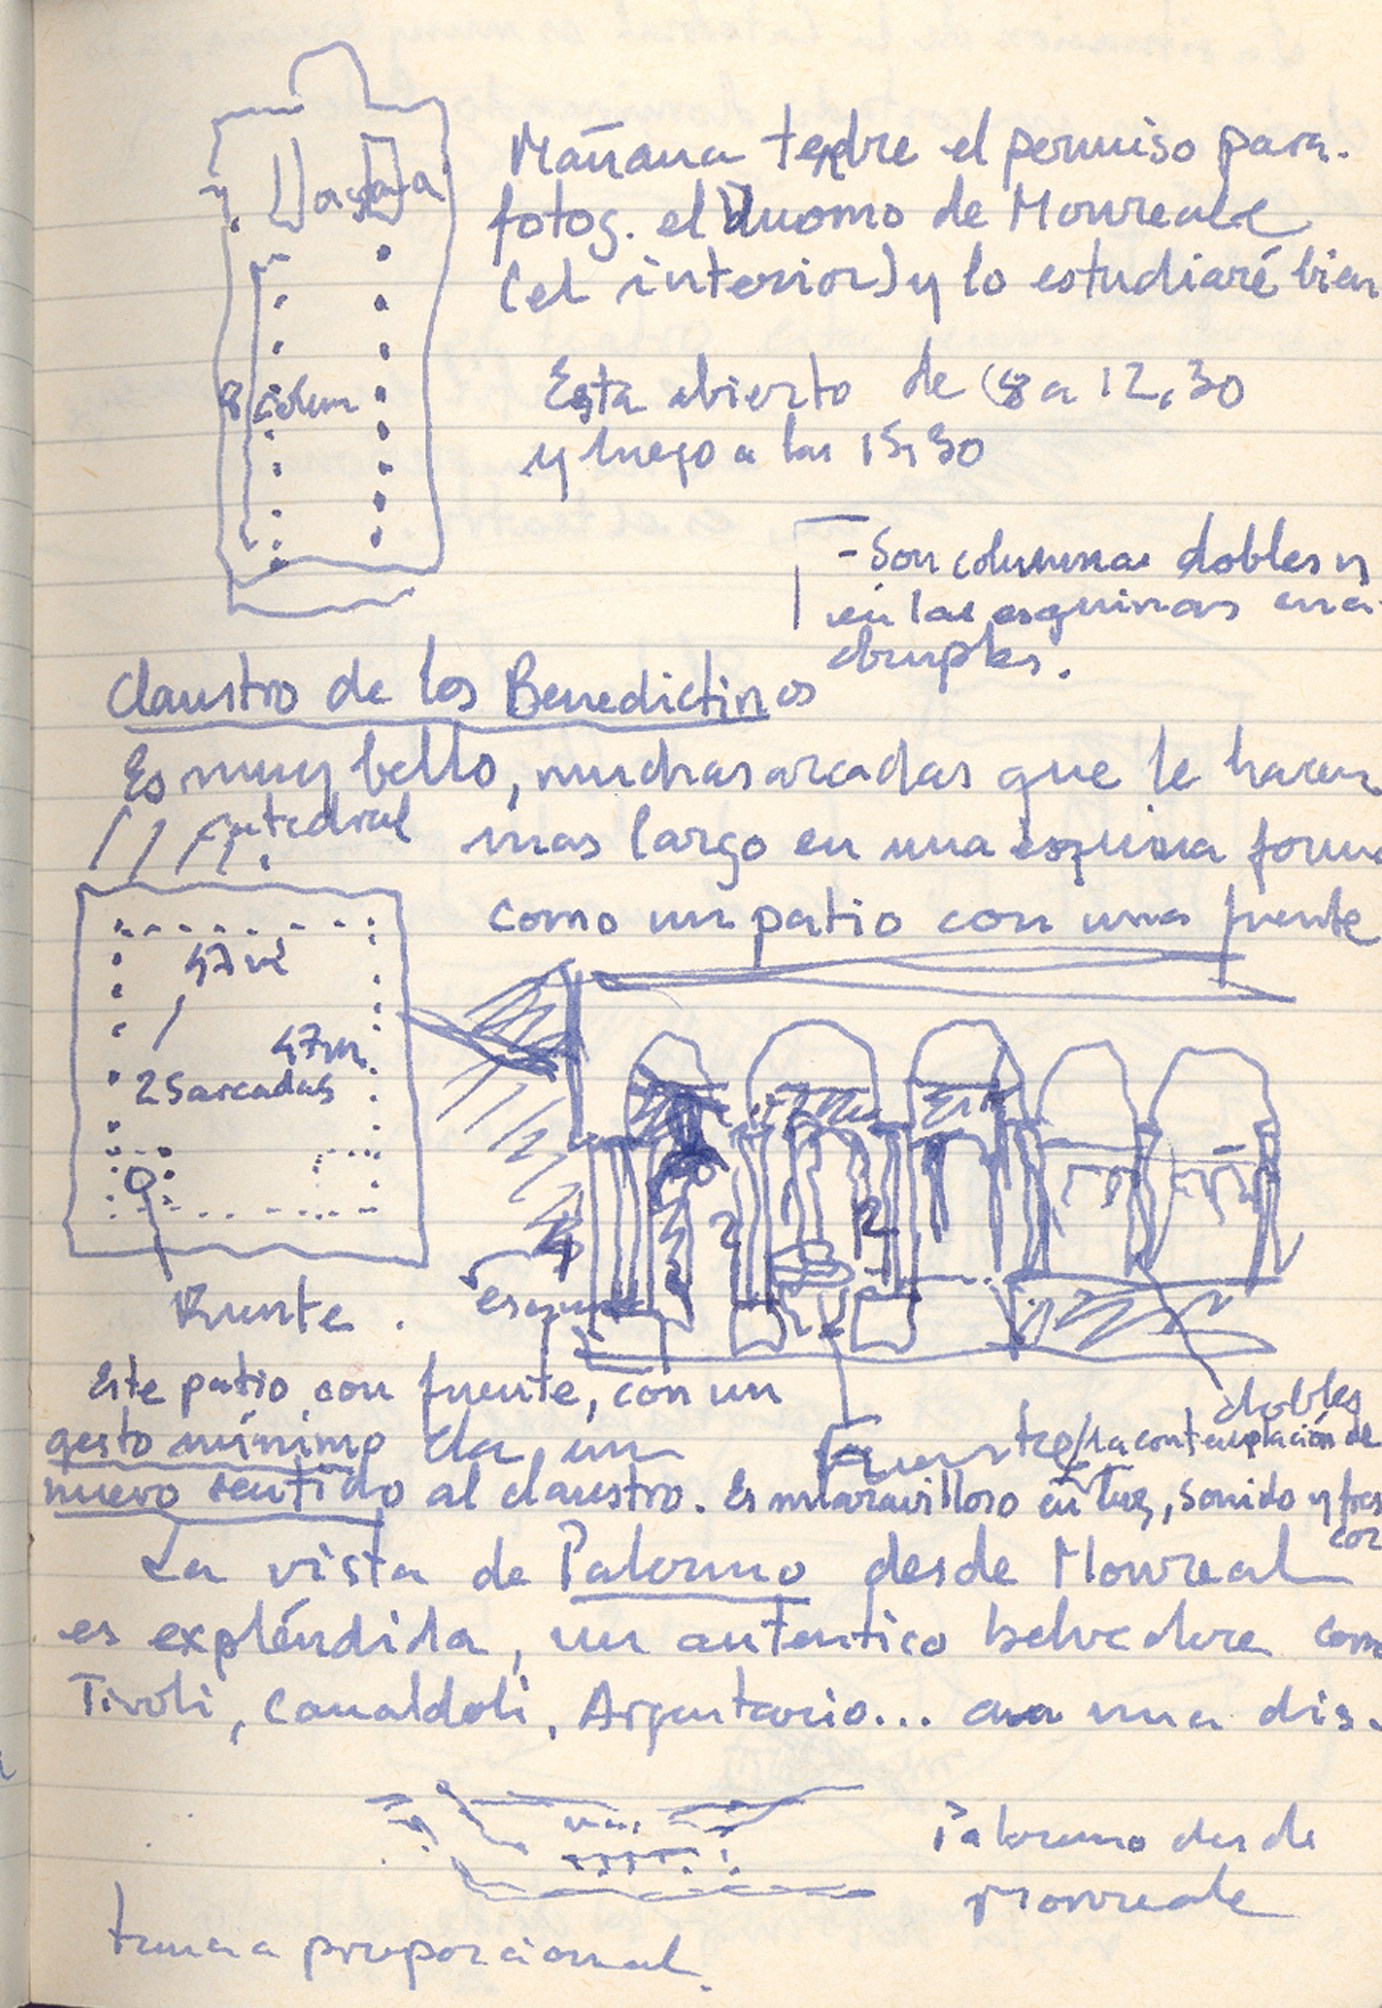 Mañana tendre el permiso para
fotog. el Duomo de Monreale
(el interior) y lo estudiaré bien
8 colum
Esta abierto de 8 a 12,30
y luego a las 15,30
- Son columnas dobles y
en las esquinas cua
druples.
Claustro de los Benedictinos
Es muy bello, muchas arcadas que le hacen
catedral
mas largo en una esquina forma
como un patio con una fuente
47 m
47 m
25 arcadas
4
2
2
esquina
Fuente.
Este patio con fuente, con un
dobles
gesto mínimo da un
Fuente/La contemplación de
nuevo sentido al claustro. Es maravilloso en luz, sonido y fres
cor
La vista de Palermo desde Monreal
es expléndida, un autentico belvedere como
Tivoli, Camaldoli, Argentario... a una dis-
Palermo desde
Monreale
tancia proporcional.